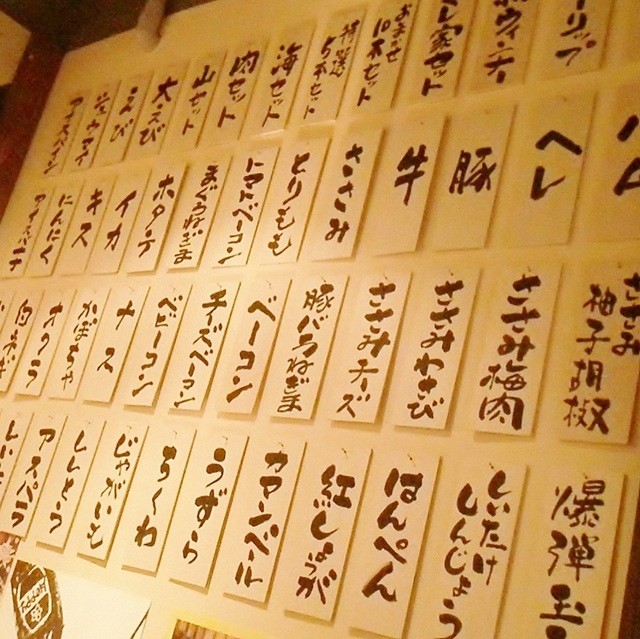 おまかせ
10本セット
特選
5本セット
海セット
肉セット
山セット
大えび
えび
シュウマイ
アイスパイン
ハム
ヘレ
豚
牛
ささみ
とりもも
トマトベーコン
まぐろねぎま
ホタテ
イカ
キス
にんにく
ささみ
柚子胡椒
ささみ梅肉
ささみわさび
ささみチーズ
豚バラねぎま
ベーコン
チーズベーコン
ベビーコン
ナス
かぼちゃ
オクラ
爆弾玉
しいたけ
しんじょう
はんぺん
紅しょうが
カマンベール
うずら
ちくわ
じゃがいも
ししとう
アスパラ